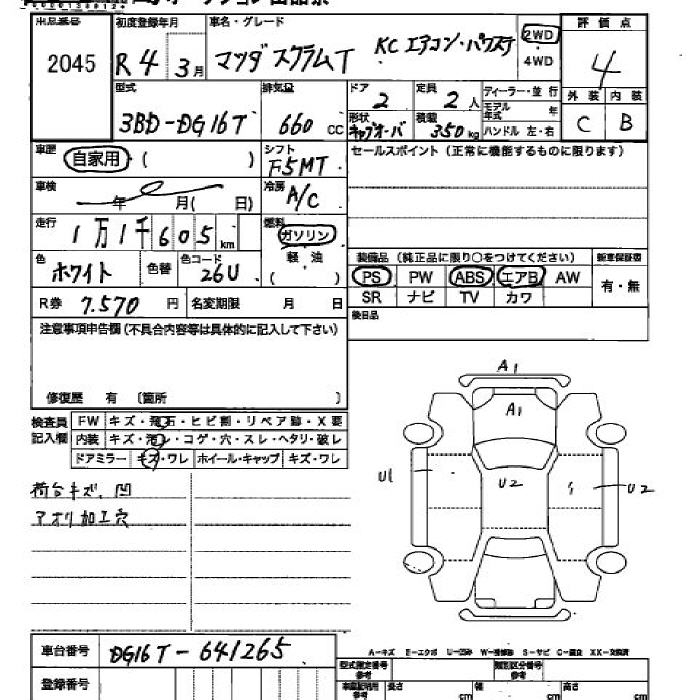 出品番号 初度登録年月 車名・グレード 評価点
2045 R4 3月 マツダスクラムT KC エアコン・パワステ 2WD 4WD 4
型式 排気量 ドア 定員 ディーラー・並行 外装 内装
3BD-DG16T 660 CC 2 2人 モデル年式 年 C B
形状 キャブオーバ 積載 350kg ハンドル 左・右
車歴 自家用 ( ) シフト F5MT セールスポイント (正常に機能するものに限ります)
車検 年 月( 日) 冷房 A/C
走行 1万1千605km 燃料 ガソリン
色 ホワイト 色替 色コード 26U 軽・油 ( )
装備品 (純正品に限り○をつけてください) 新車保証書
PS PW ABS エアB AW 有・無
SR ナビ TV カワ
R券 7.570 円 名変期限 月 日
後日品
注意事項申告欄 (不具合内容等は具体的に記入して下さい)
修復歴 有 〔箇所 〕
検査員記入欄 FW キズ・飛石・ヒビ割・リペア跡・X要
内装 キズ・汚レ・コゲ・穴・スレ・ヘタリ・破レ
ドアミラー キズ・ワレ ホイール・キャップ キズ・ワレ
荷台キズ、凹
アオリ加工穴
A1
A1
U1 U2 U2
車台番号 DG16T-641265
A-キズ E-エクボ U-凹み W-補修跡 S-サビ C-腐食 XX-交換済
登録番号
型式指定番号 参考 類別区分番号 参考
長さ cm 幅 cm 高さ cm